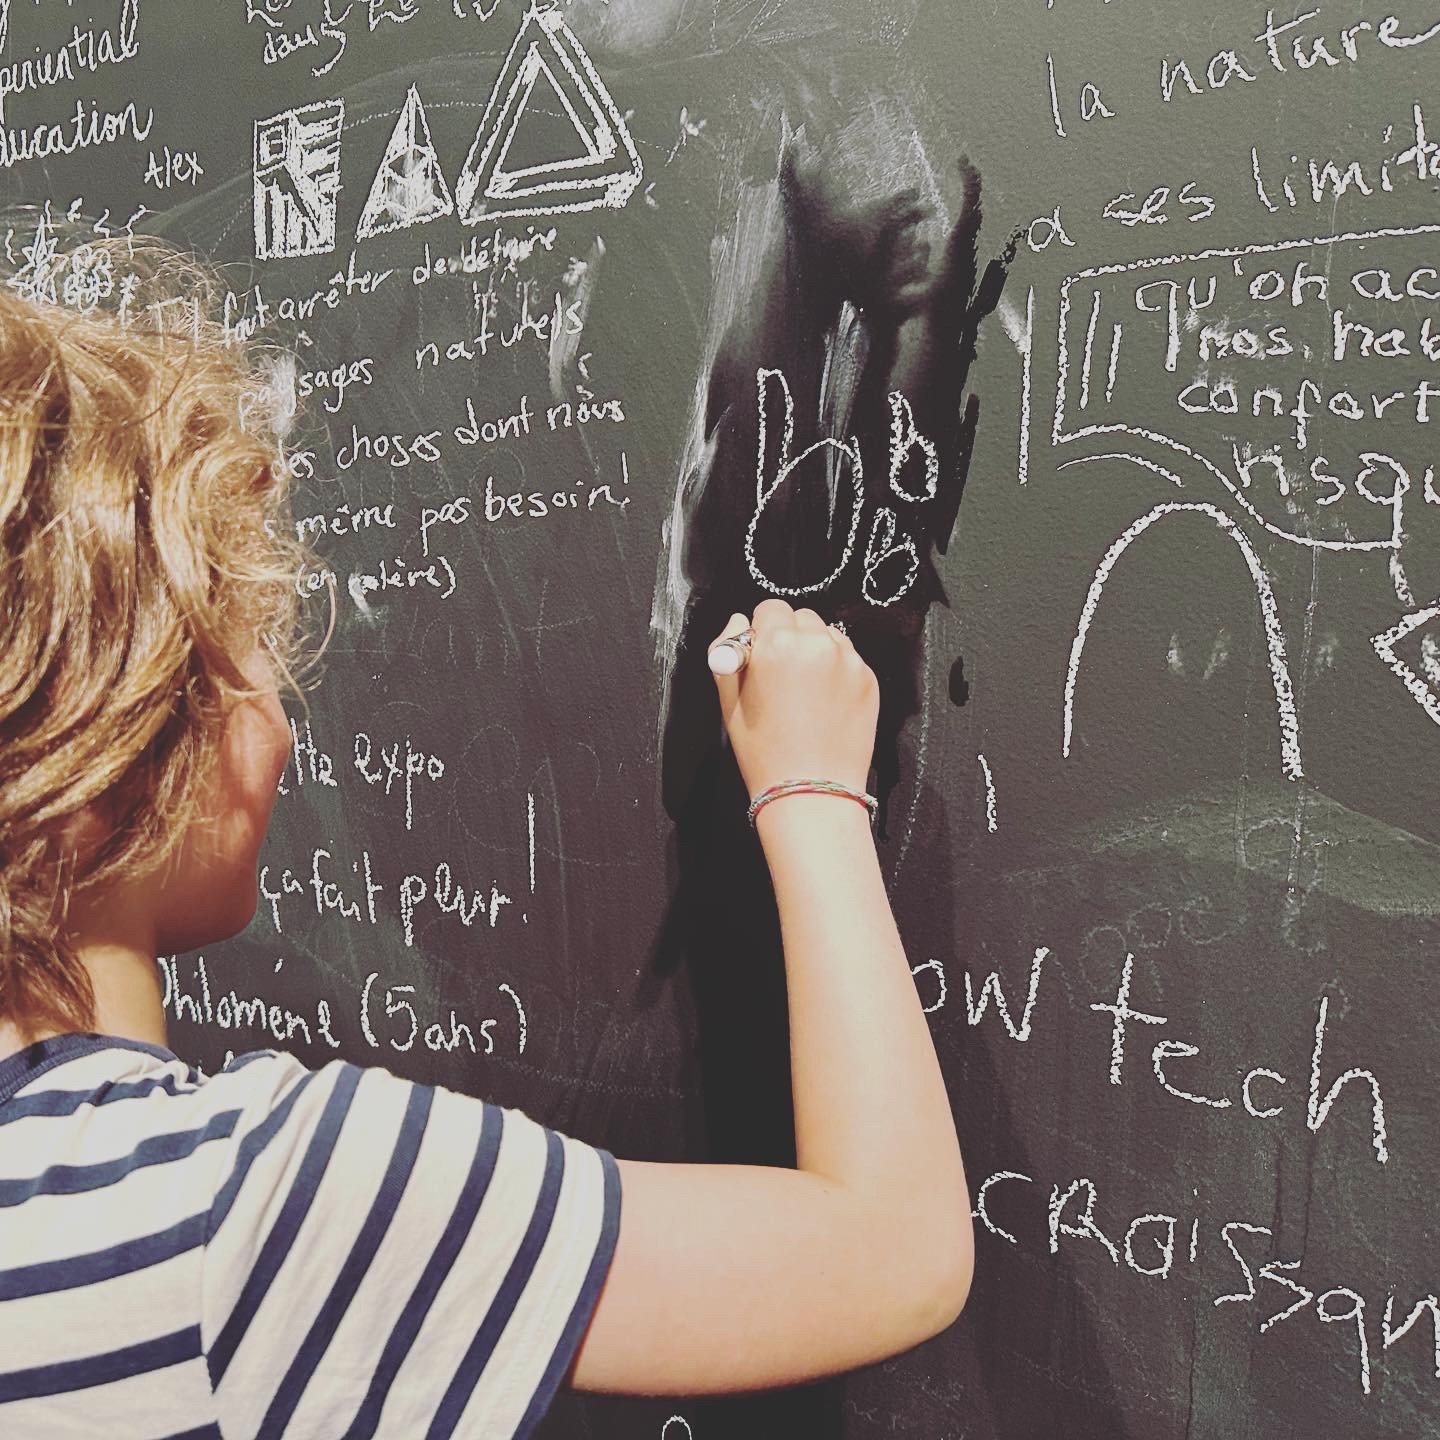 periential
ducation
Alex
dans
Il faut arrêter de détruire
paysages naturels
des choses dont nous
même pas besoin!
(en colère)
expo
ça fait pleur!
Philomène (5 ans)
b b
B
la nature
a ses limit
qu'on ac
nos hab
confort
risqu
ow tech
cRoissan